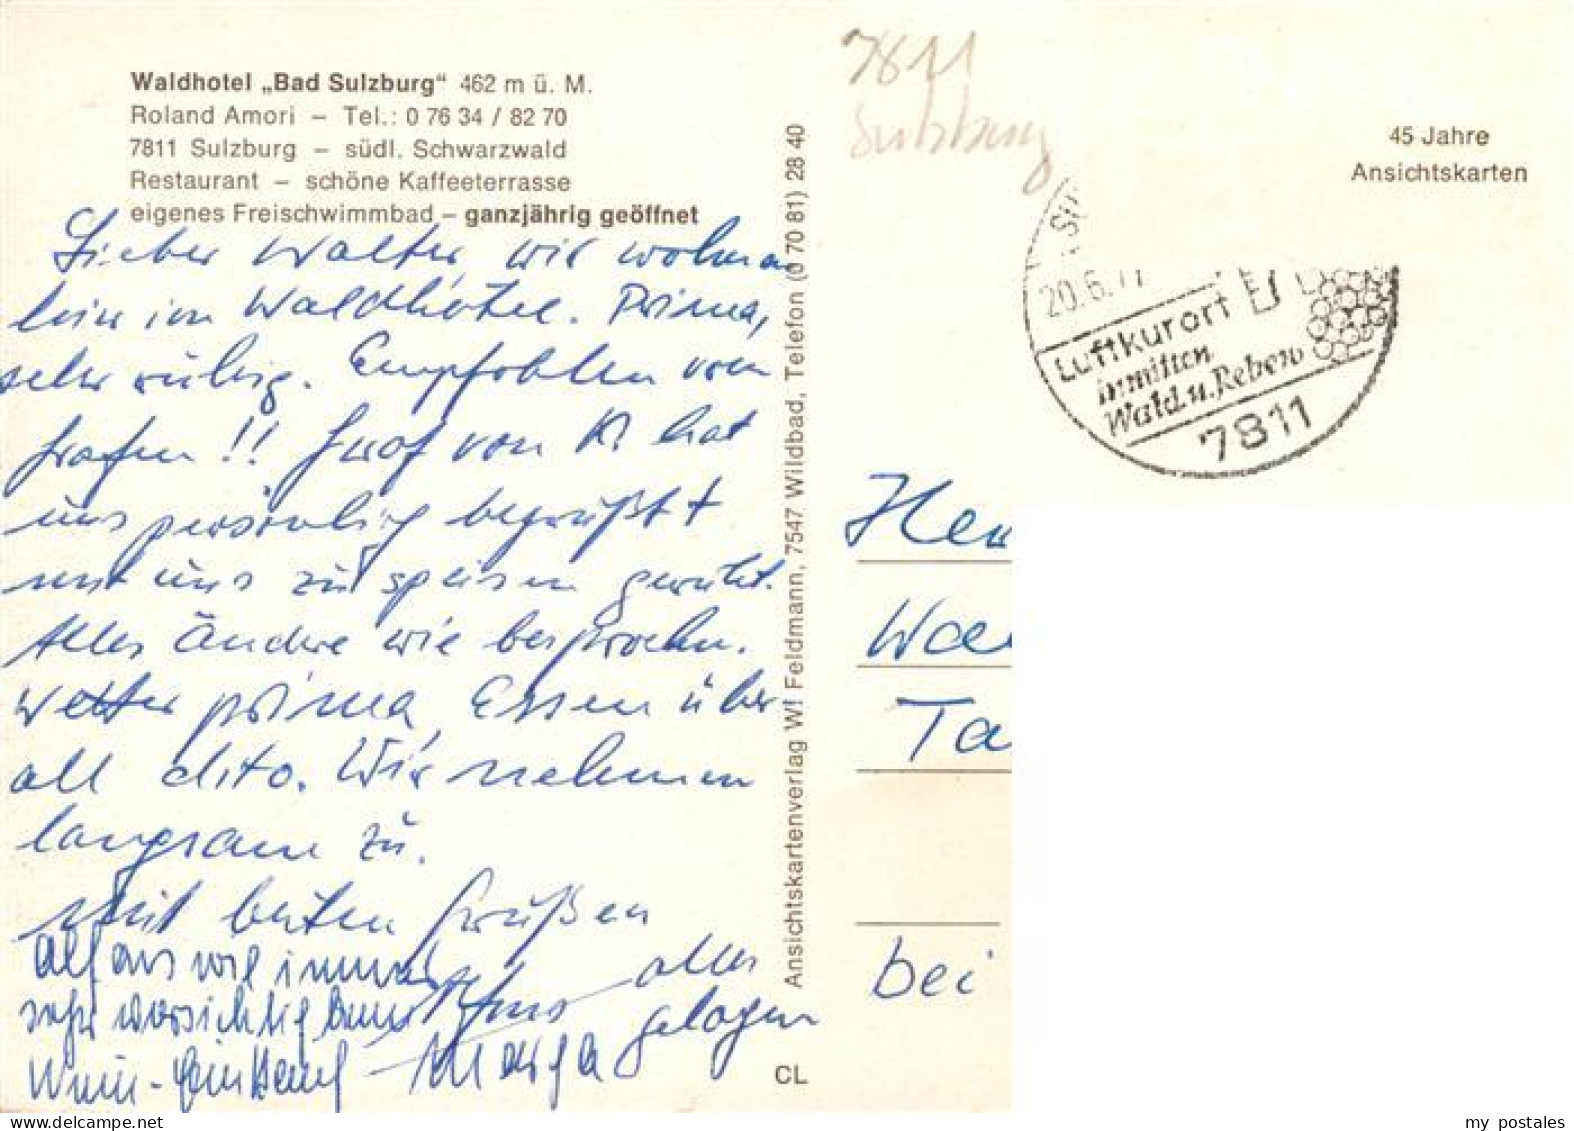 Waldhotel „Bad Sulzburg“ 462 m ü. M.
Roland Amori – Tel.: 0 76 34 / 82 70
7811 Sulzburg – südl. Schwarzwald
Restaurant – schöne Kaffeeterrasse
eigenes Freischwimmbad – ganzjährig geöffnet
Lieber Walter, wir wohnen
hier im Waldhotel. Prima,
sehr ruhig. Empfohlen vom
Grafen !! Graf von R. hat
uns persönlich begrüßt
mit uns zu speisen geruht.
Alles Andre wie besprochen.
Wetter prima, Essen über-
all dito. Wir nehmen
langsam zu.
Mit besten Grüßen
Alfons wie immer
sehr vorsichtig beim
Wein-Einkauf
alles
gelogen
Marga
Ansichtskartenverlag W! Feldmann, 7547 Wildbad, Telefon (0 70 81) 28 40
CL
7811
Sulzburg
45 Jahre
Ansichtskarten
20.6.77
Luftkurort
inmitten
Wald u. Reben
7811
Her
Wal
Ta
bei
my postales